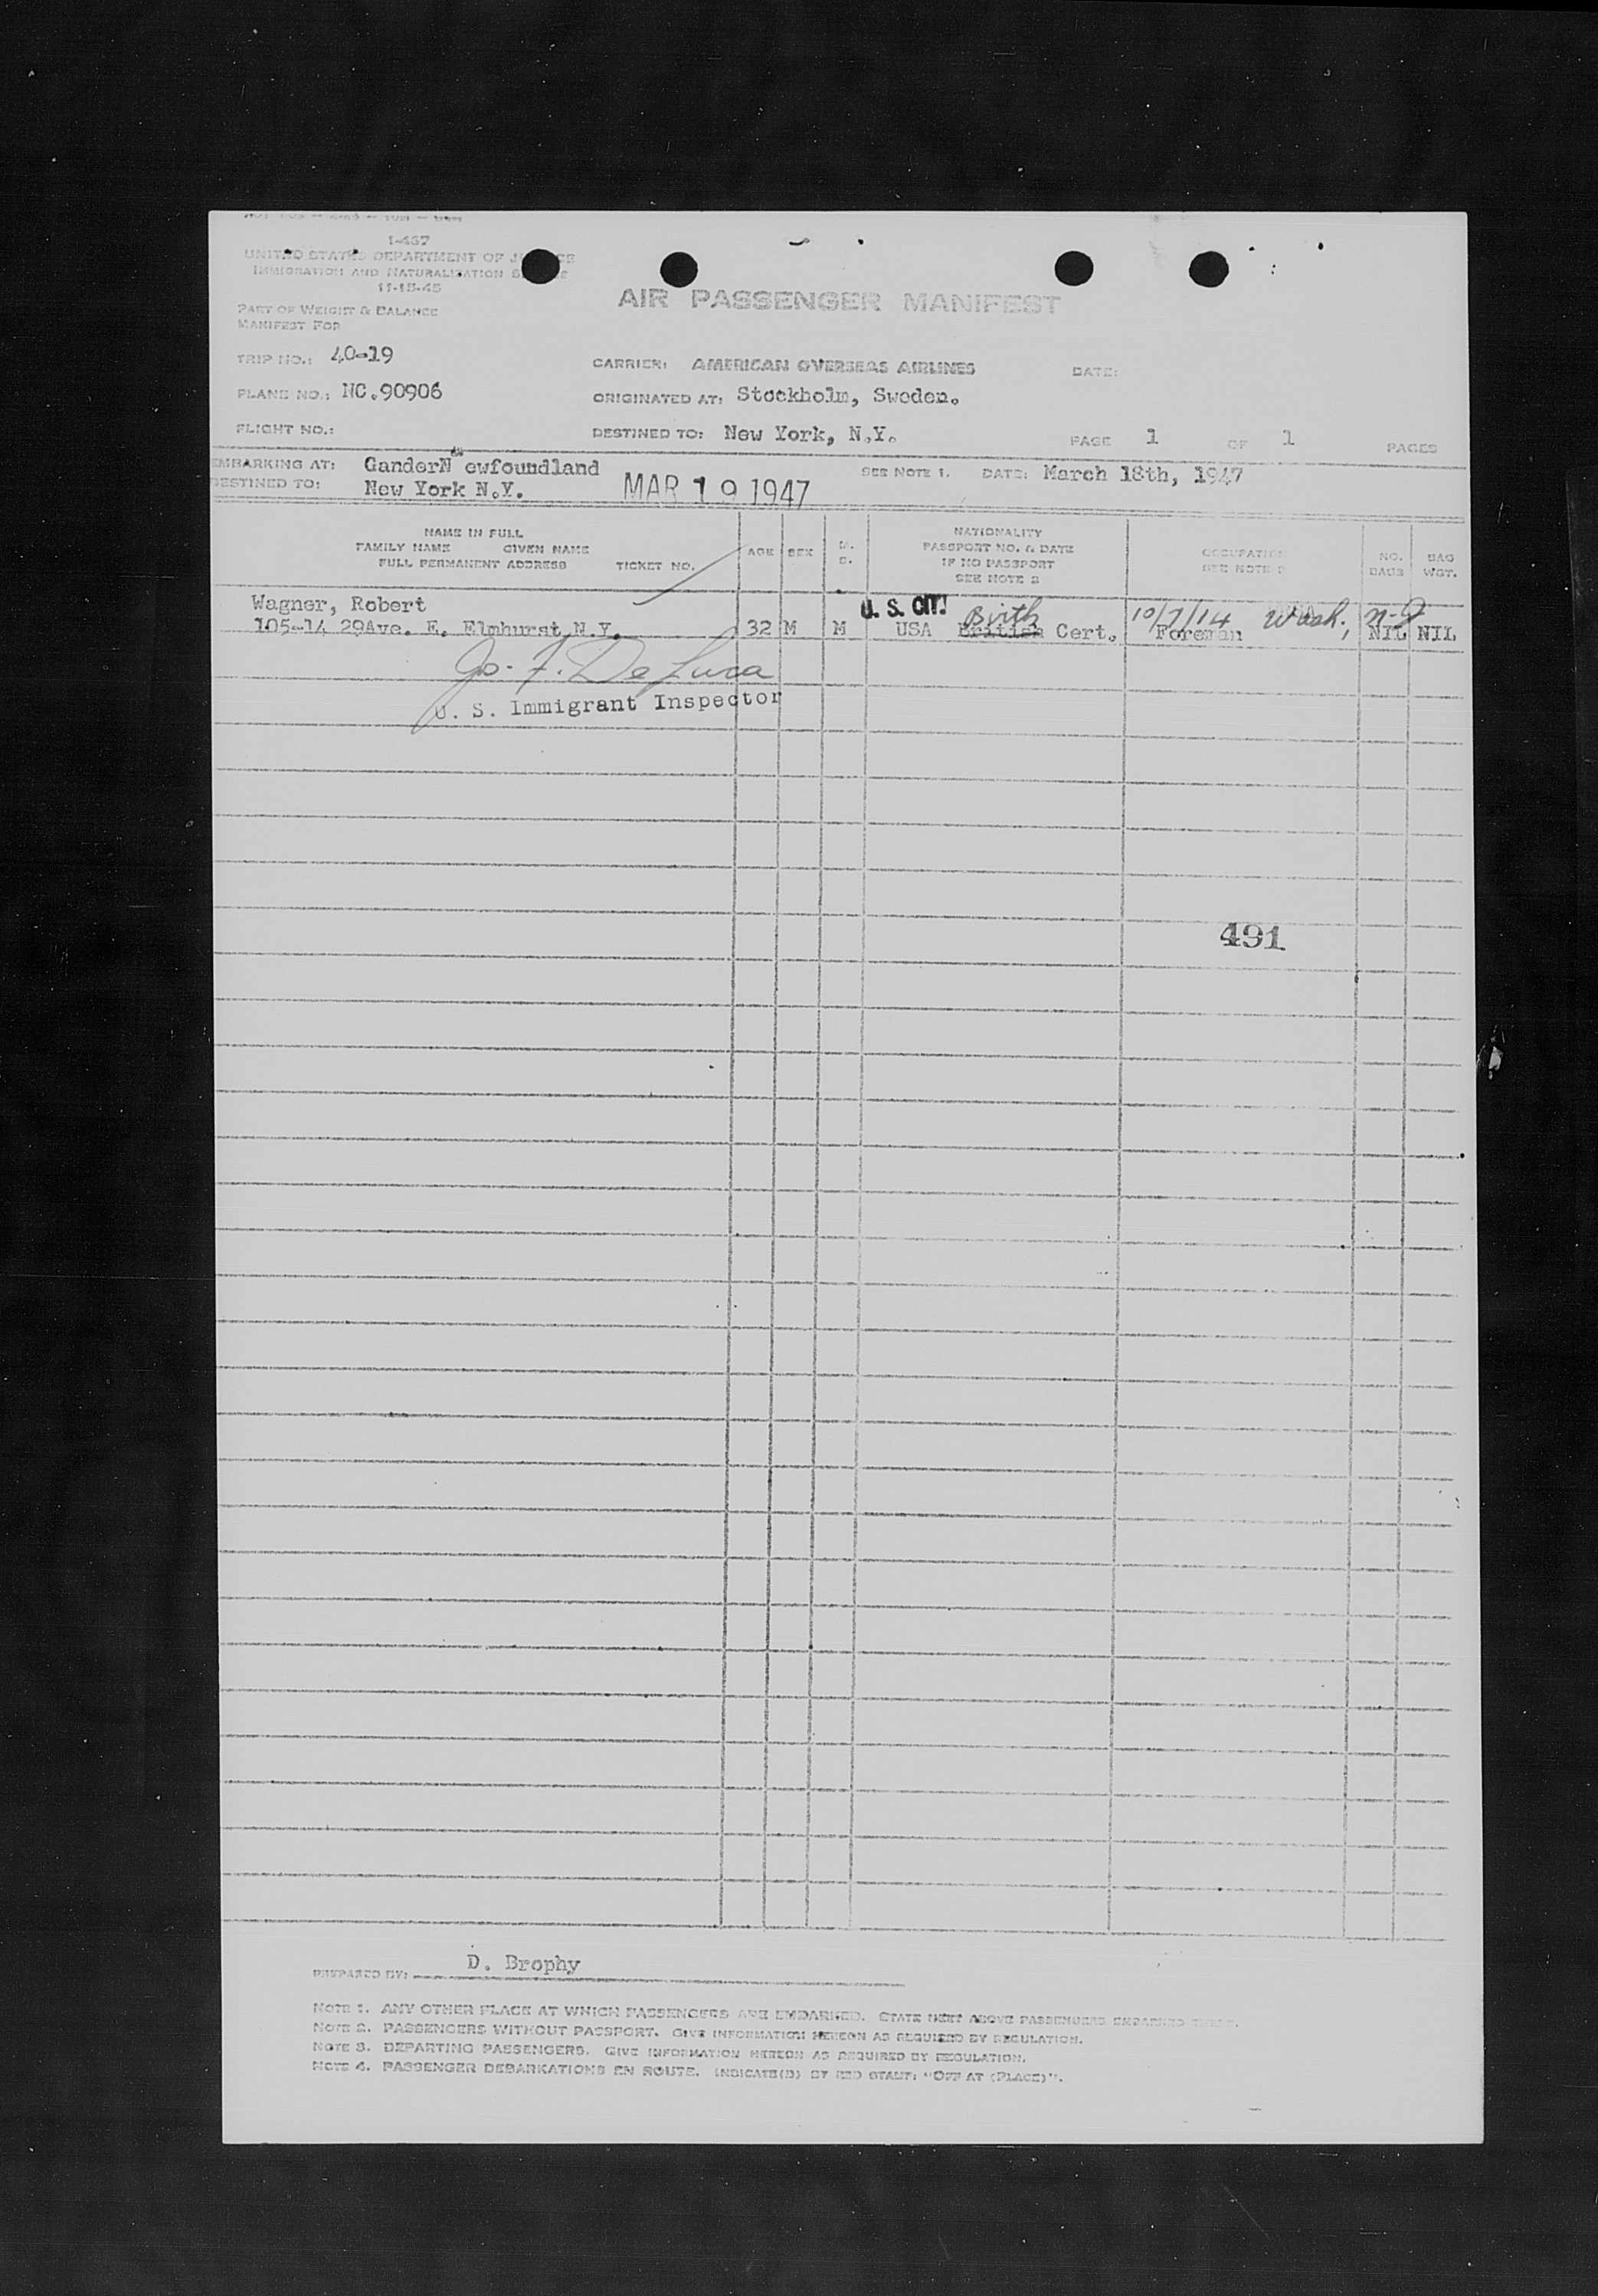 I-467
UNITED STATES DEPARTMENT OF JUSTICE
IMMIGRATION AND NATURALIZATION SERVICE
11-15-45
PART OF WEIGHT & BALANCE
MANIFEST FOR
AIR PASSENGER MANIFEST
TRIP NO.: 40-19
CARRIER: AMERICAN OVERSEAS AIRLINES
DATE:
PLANE NO.: NC.90906
ORIGINATED AT: Stockholm, Sweden.
FLIGHT NO.:
DESTINED TO: New York, N.Y.
PAGE 1 OF 1 PAGES
EMBARKING AT: GanderN ewfoundland
SEE NOTE 1. DATE: March 18th, 1947
DESTINED TO: New York N.Y.
MAR 19 1947
NAME IN FULL
FAMILY NAME GIVEN NAME
FULL PERMANENT ADDRESS TICKET NO.
AGE
SEX
M.
S.
NATIONALITY
PASSPORT NO. & DATE
IF NO PASSPORT
SEE NOTE 2
OCCUPATION
SEE NOTE 2
NO.
BAGS
BAG
WGT.
Wagner, Robert
U. S. CIT. Birth 10/7/14 Wash., N-J
105-14 29Ave. E. Elmhurst N.Y. 32 M M USA British Cert. Foreman NIL NIL
Jo. F. De Luca
U. S. Immigrant Inspector
491
PREPARED BY: D. Brophy
NOTE 1. ANY OTHER PLACE AT WHICH PASSENGERS ARE EMBARKED. STATE NEXT ABOVE PASSENGERS EMBARKED THERE.
NOTE 2. PASSENGERS WITHOUT PASSPORT. GIVE INFORMATION HEREON AS REQUIRED BY REGULATION.
NOTE 3. DEPARTING PASSENGERS. GIVE INFORMATION HEREON AS REQUIRED BY REGULATION.
NOTE 4. PASSENGER DEBARKATIONS EN ROUTE. INDICATE(D) BY RED STAMP: "OFF AT (PLACE)".